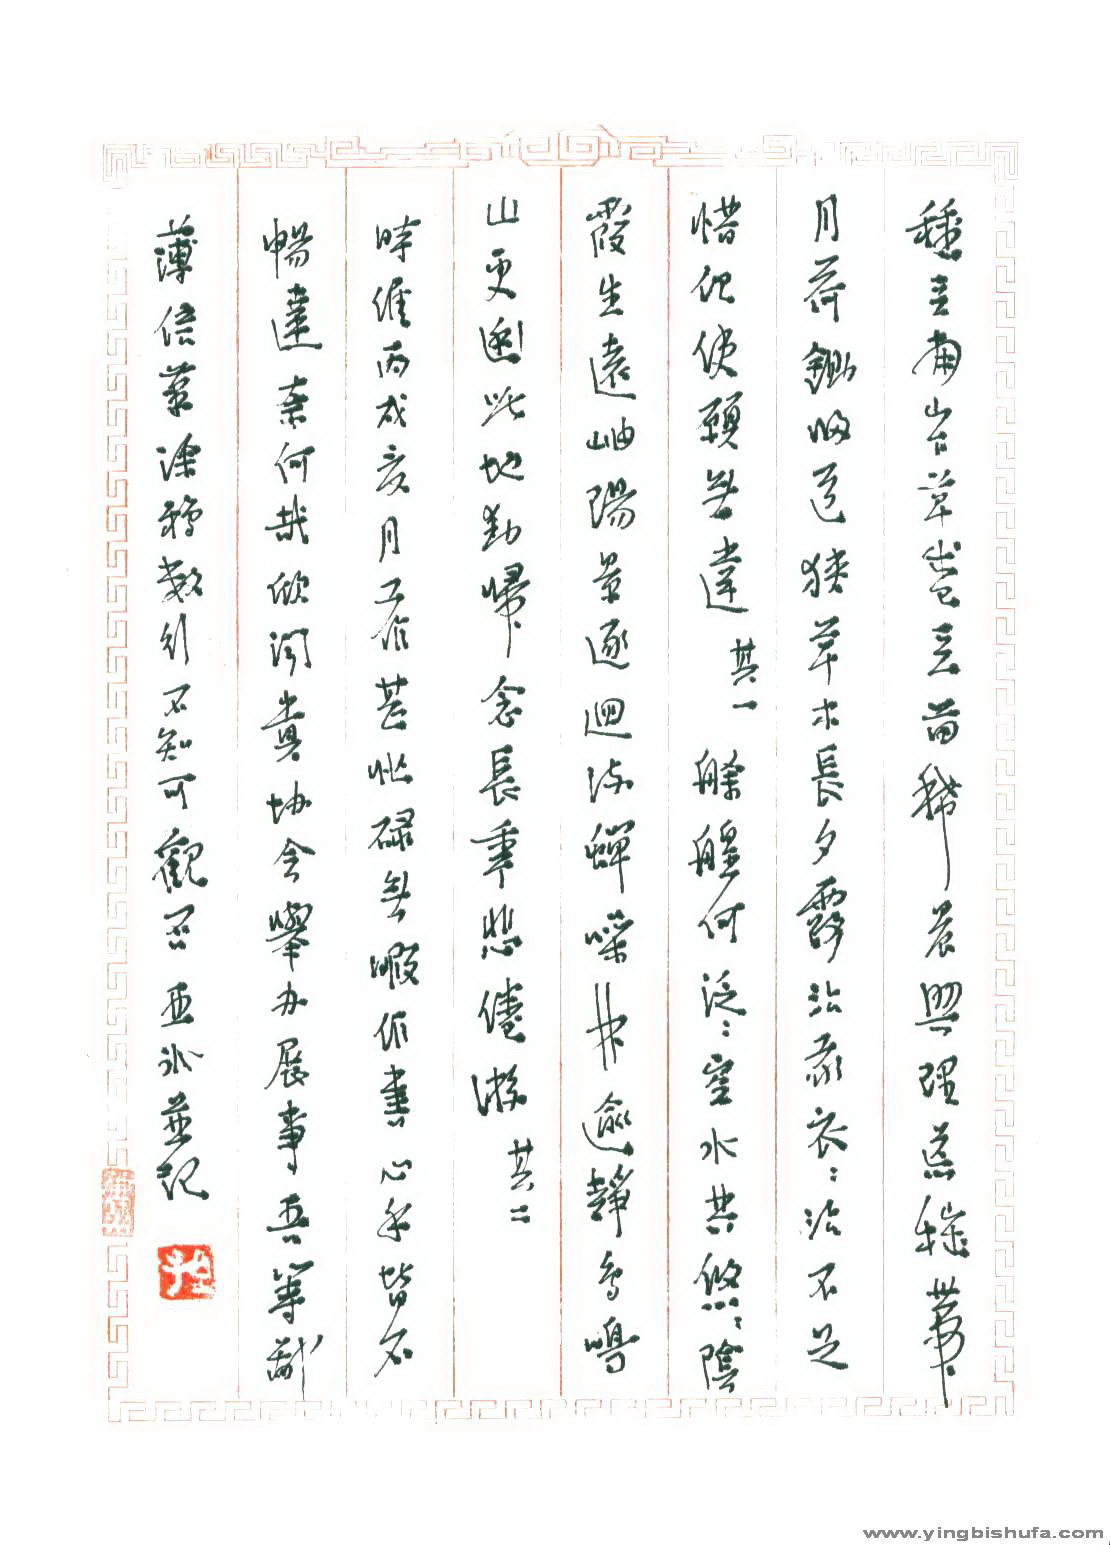 種豆南山下草盛豆苗稀晨興理荒穢帶
月荷鋤歸道狹草木長夕露沾我衣〻沾不足
惜但使願無違 其一 艅艎何泛〻空水共悠〻陰
霞生遠岫陽景逐迴流蟬噪林逾靜鳥鳴
山更幽此地動歸念長年悲倦遊 其二
時維丙戌亥月工作甚忙碌無暇作書心手皆不
暢達奈何哉欣聞貴协会舉办展事吾等
薄信筆塗鴉數行不知可觀否 亞冰並記
www.yingbishufa.com